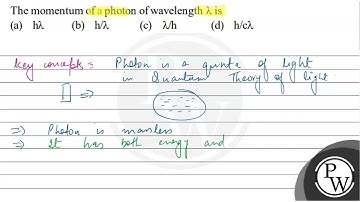 The momentum of a photon of wavelength λ is
(a) hλ (b) h/λ (c) λ/h (d) h/cλ
Key concepts = Photon is a quanta of light
in Quantum Theory of light
⇒
⇒ Photon is massless
⇒ It has both energy and
PW